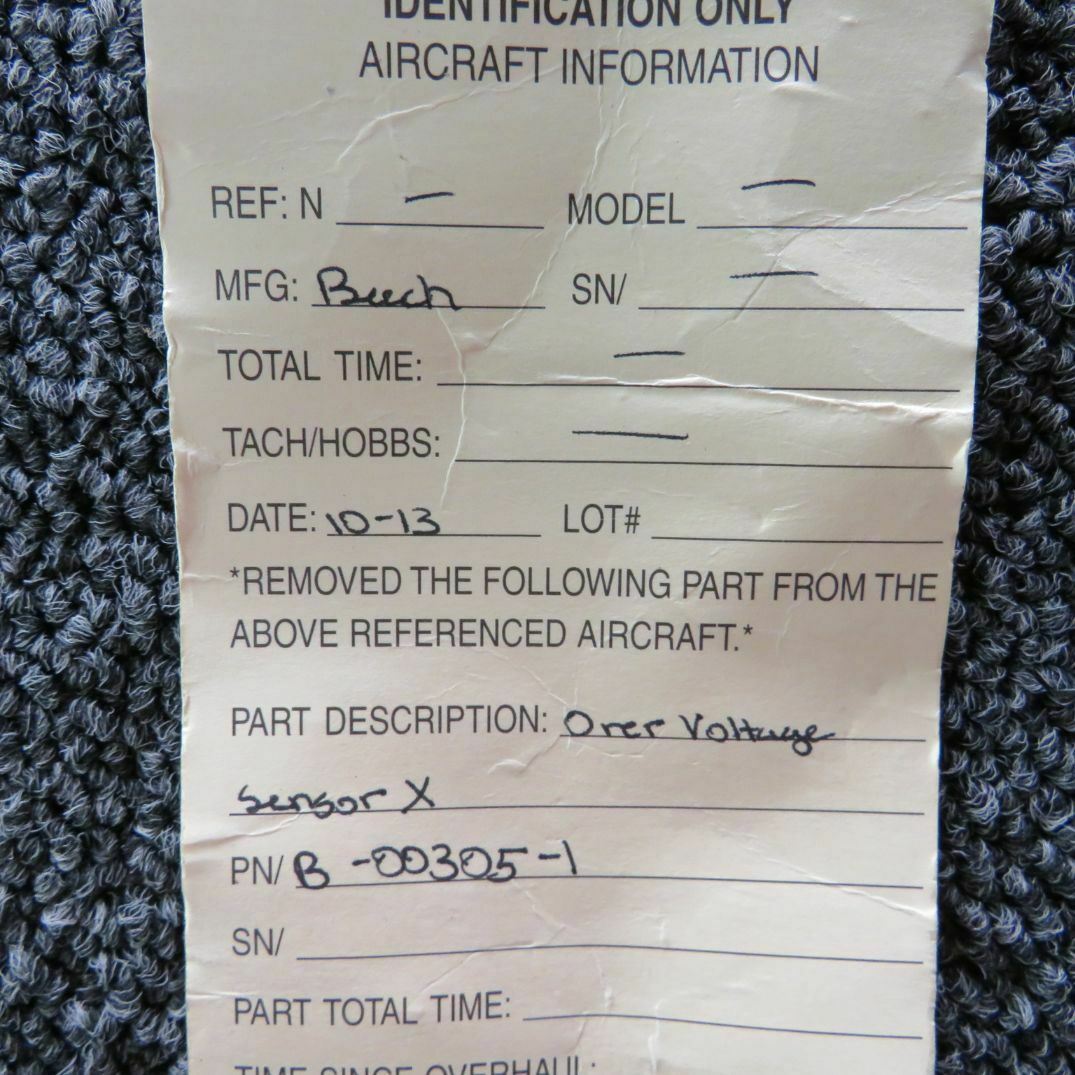 IDENTIFICATION ONLY
AIRCRAFT INFORMATION
REF: N — MODEL —
MFG: Beech SN/ —
TOTAL TIME: —
TACH/HOBBS: —
DATE: 10-13 LOT#
*REMOVED THE FOLLOWING PART FROM THE
ABOVE REFERENCED AIRCRAFT.*
PART DESCRIPTION: Over Voltage
Sensor X
PN/ B-00305-1
SN/
PART TOTAL TIME:
TIME SINCE OVERHAUL: